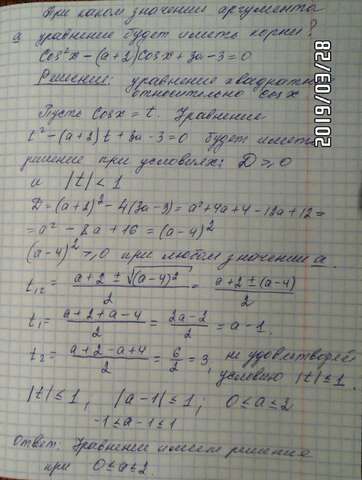 При каком значении аргумента
a уравнение будет иметь корни?
Cos²x − (a+2)Cos x + 3a − 3 = 0
Решение: уравнение квадратно
относительно cos x
Пусть Cos x = t. Уравнение
t² − (a+2)t + 3a − 3 = 0 будет иметь
решение при условиях: D ≥ 0
и |t| < 1
D = (a+2)² − 4(3a−3) = a² + 4a + 4 − 12a + 12 =
= a² − 8a + 16 = (a−4)²
(a−4)² ≥ 0 при любом значении a.
t₁,₂ = (a+2 ± √(a−4)²)/2 = (a+2 ± (a−4))/2
t₁ = (a+2+a−4)/2 = (2a−2)/2 = a−1.
t₂ = (a+2−a+4)/2 = 6/2 = 3, не удовлетворяет
условию |t| ≤ 1.
|t| ≤ 1, |a−1| ≤ 1; 0 ≤ a ≤ 2
−1 ≤ a−1 ≤ 1
Ответ: Уравнение имеет решения
при 0 ≤ a ≤ 2.
2019/03/28